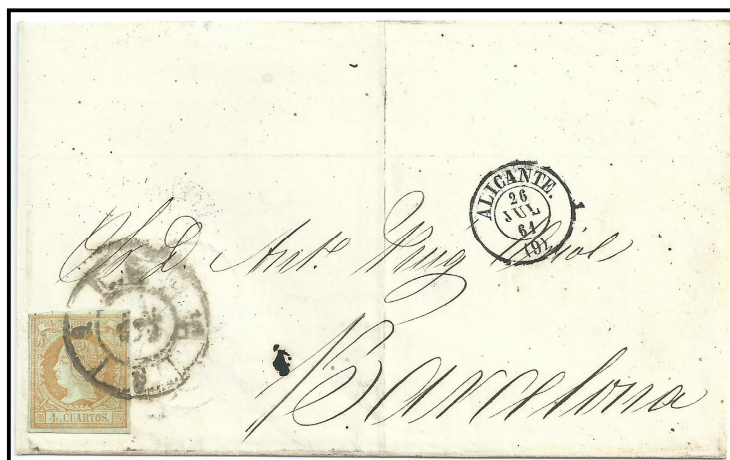 ALICANTE.
26
JUL
61
(9)
Sr. D. Ant.º Puig
Barcelona
4 CUARTOS.